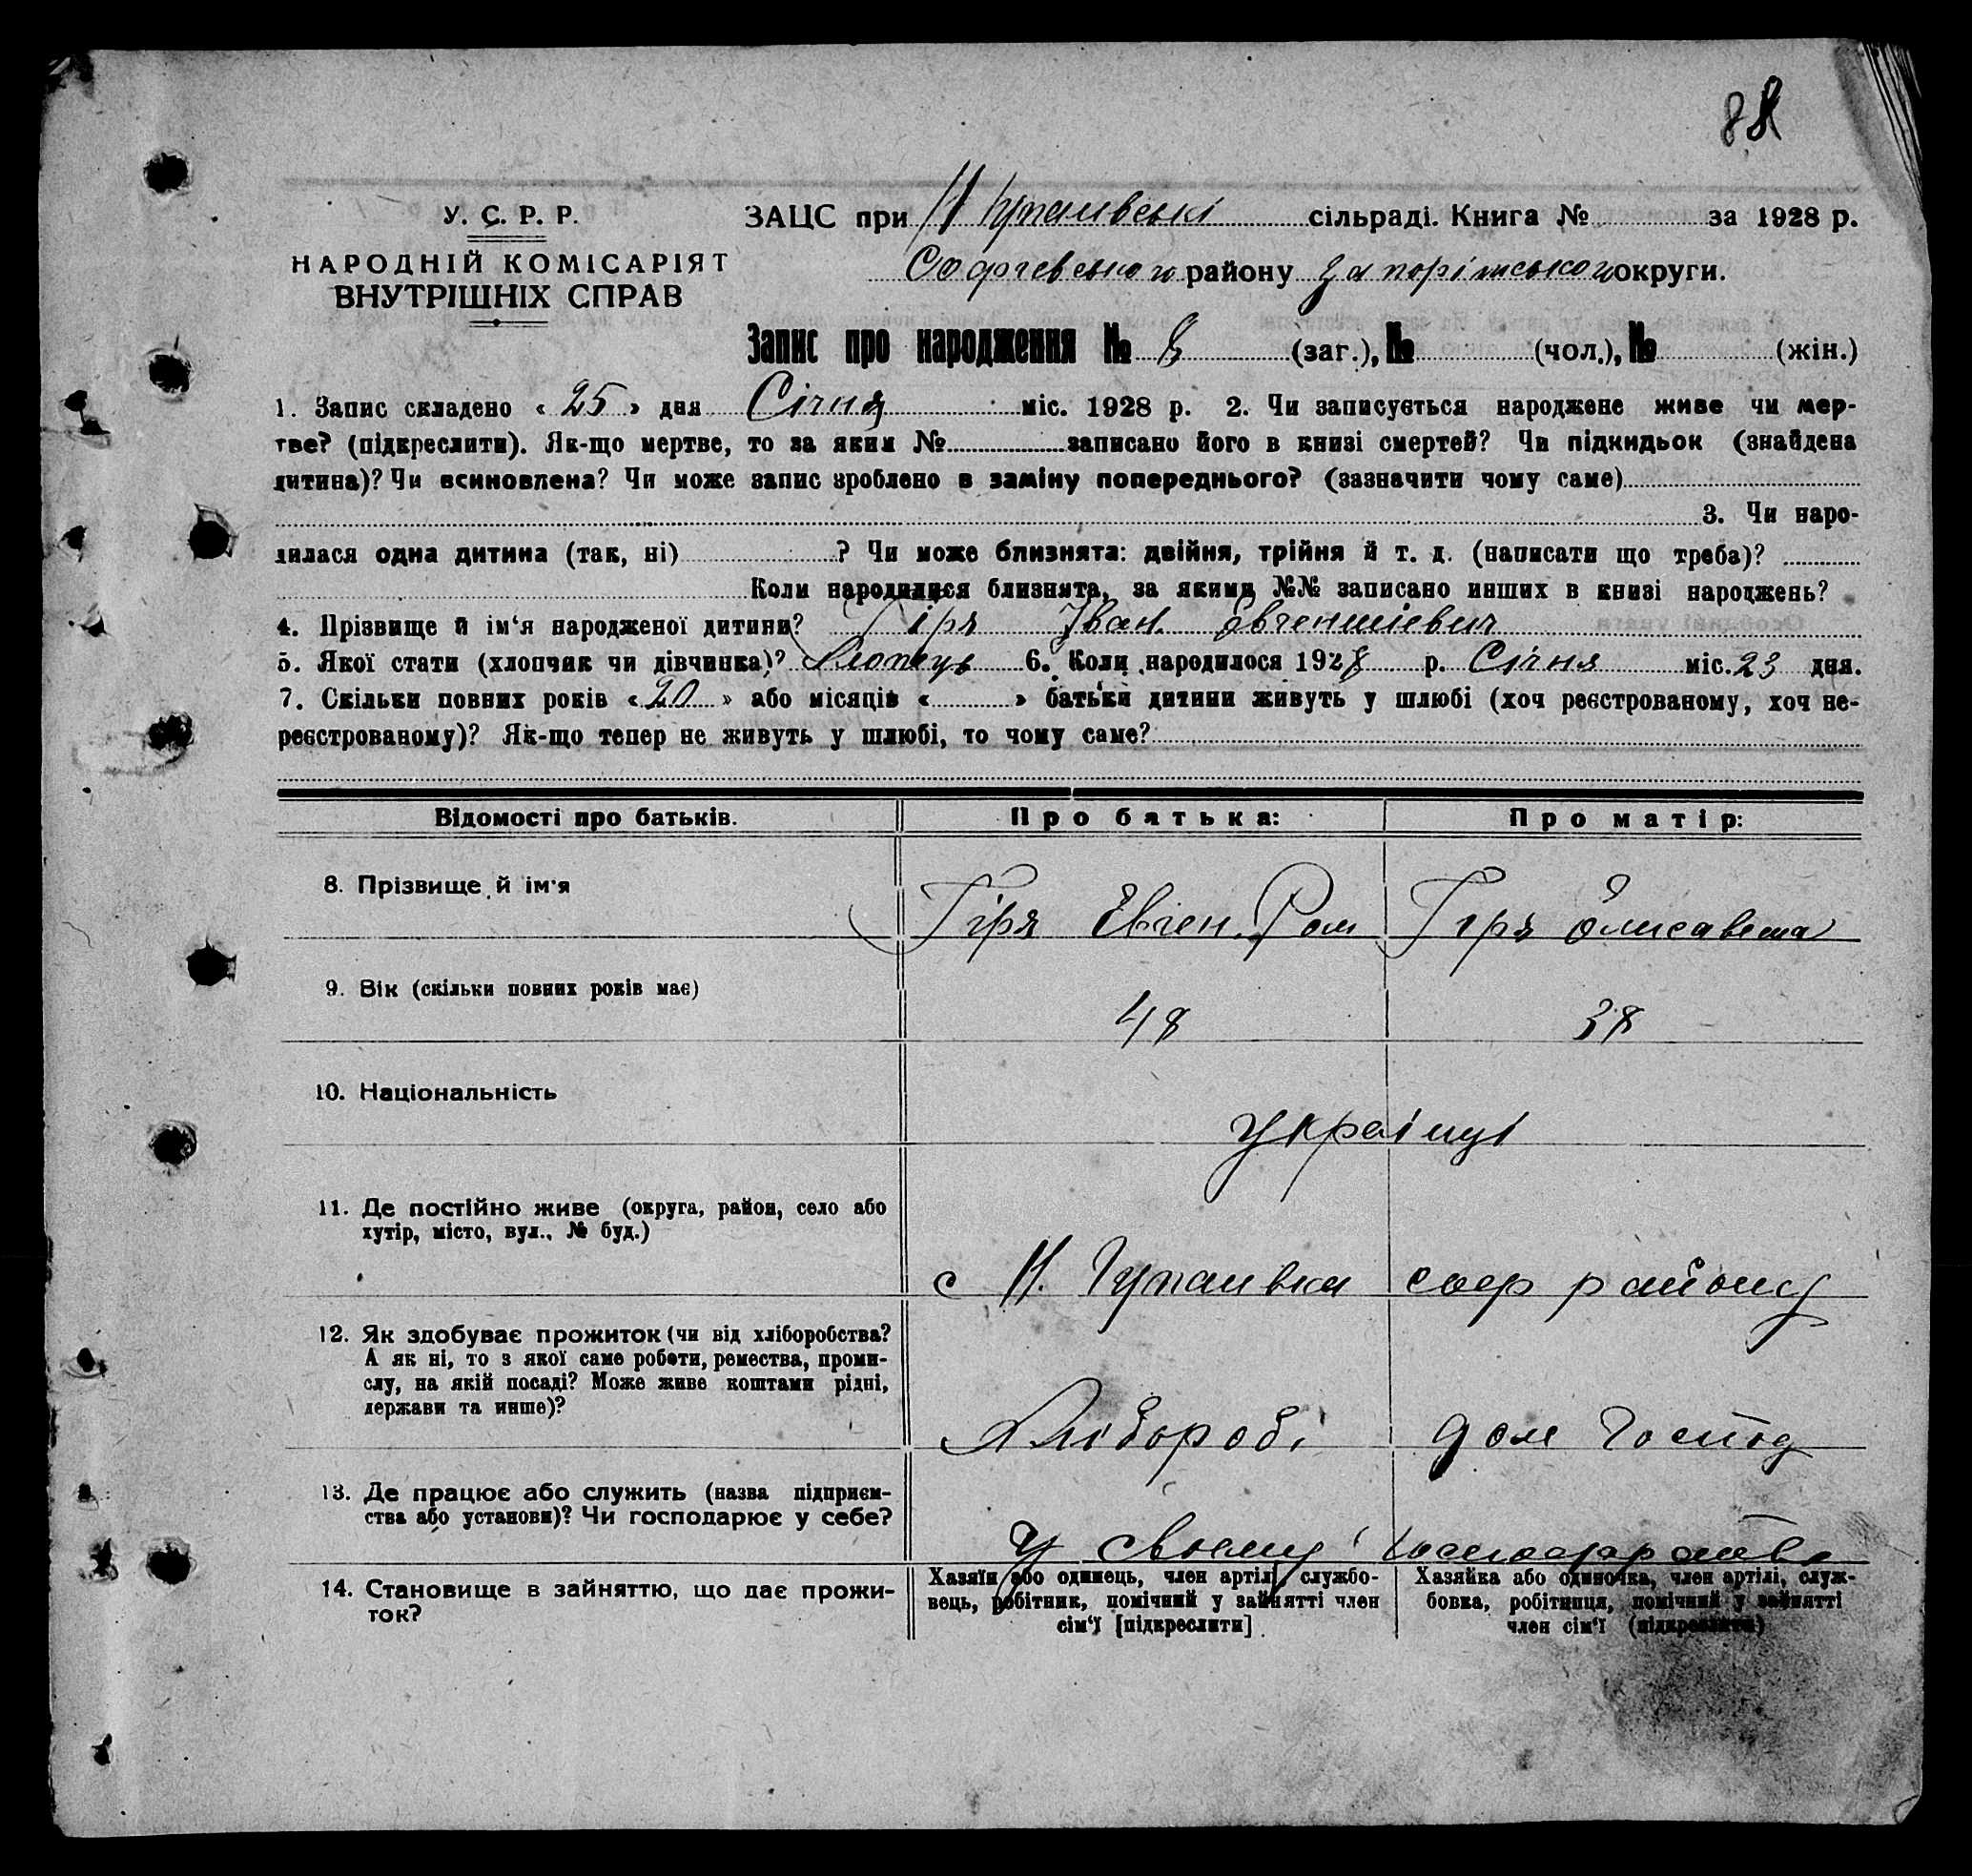 88
У. С. Р. Р.
НАРОДНІЙ КОМІСАРІЯТ
ВНУТРІШНІХ СПРАВ
ЗАЦС при Н сільраді. Книга № за 1928 р.
Софіевського району Запоріжського округи.
Запис про народження № 8 (заг.), № (чол.), № (жін.)
1. Запис складено « 25 » дня Січня міс. 1928 р. 2. Чи записується народжене живе чи мер-
тве? (підкреслити). Як-що мертве, то за яким № записано його в книзі смертей? Чи підкидьок (знайдена
дитина)? Чи всиновлена? Чи може запис зроблено в заміну попереднього? (зазначити чому саме)
3. Чи наро-
дилася одна дитина (так, ні) ? Чи може близнята: двійня, трійня й т. д. (написати що треба)?
Коли народилися близнята, за якими №№ записано инших в книзі народжень?
4. Прізвище й ім‘я народженої дитини? Гіря Іван
5. Якої стати (хлопчик чи дівчинка)? Хлопець 6. Коли народилося 1928 р. Січня міс. 23 дня.
7. Скільки повних років « 20 » або місяців « » батьки дитини живуть у шлюбі (хоч реєстрованому, хоч не-
реєстрованому)? Як-що тепер не живуть у шлюбі, то чому саме?
Відомості про батьків. Про батька: Про матір:
8. Прізвище й ім‘я Гіря Евген. Ром Гіря Елисавета
9. Вік (скільки повних років має) 48 38
10. Національність Українці
11. Де постійно живе (округа, район, село або
хутір, місто, вул., № буд.)
с Н. соф району
12. Як здобуває прожиток (чи від хліборобства?
А як ні, то з якої саме роботи, ремества, проми-
слу, на якій посаді? Може живе коштами рідні,
держави та инше)?
Хлібороб дом Господ
13. Де працює або служить (назва підприєм-
ства або установи)? Чи господарює у себе?
У своему
14. Становище в зайняттю, що дає прожи-
ток?
Хазяїн або одинець, член артілі, службо-
вець, робітник, помічний у зайнятті член
сім‘ї [підкреслити]
Хазяйка або одиночка, член артілі, служ-
бовка, робітниця, помічний у зайнятті
член сім‘ї (підкреслити)